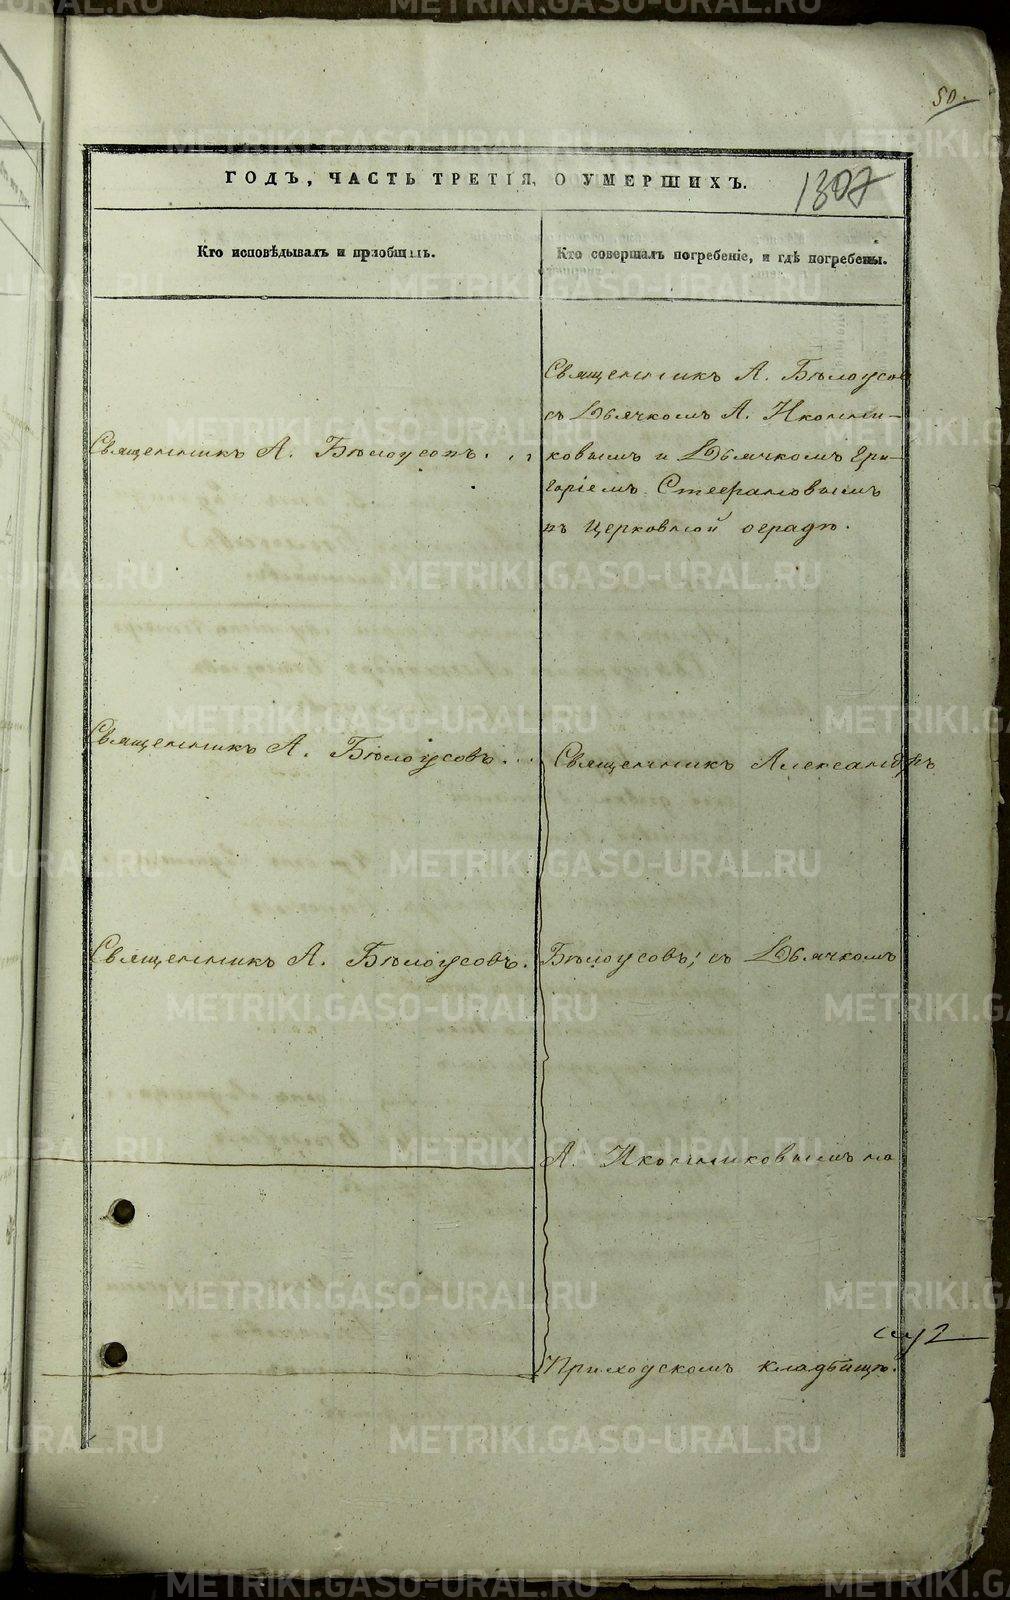 50.
ГОДЪ, ЧАСТЬ ТРЕТІЯ, О УМЕРШИХЪ.
1307
Кто исповѣдывалъ и пріобщалъ.
Кто совершалъ погребеніе, и гдѣ погребены.
Священникъ А. Бѣлоусовъ
Священникъ А. Бѣлоусовъ
съ Дьячкомъ А. Иконни-
ковымъ и Дьячкомъ Гри-
горіемъ Стефановымъ
въ Церковной оградѣ.
Священникъ А. Бѣлоусовъ...
Священникъ Александръ
Священникъ А. Бѣлоусовъ.
Бѣлоусовъ; съ Дьячкомъ
А. Иконниковымъ на
Приходскомъ кладбищѣ.
METRIKI.GASO-URAL.RU